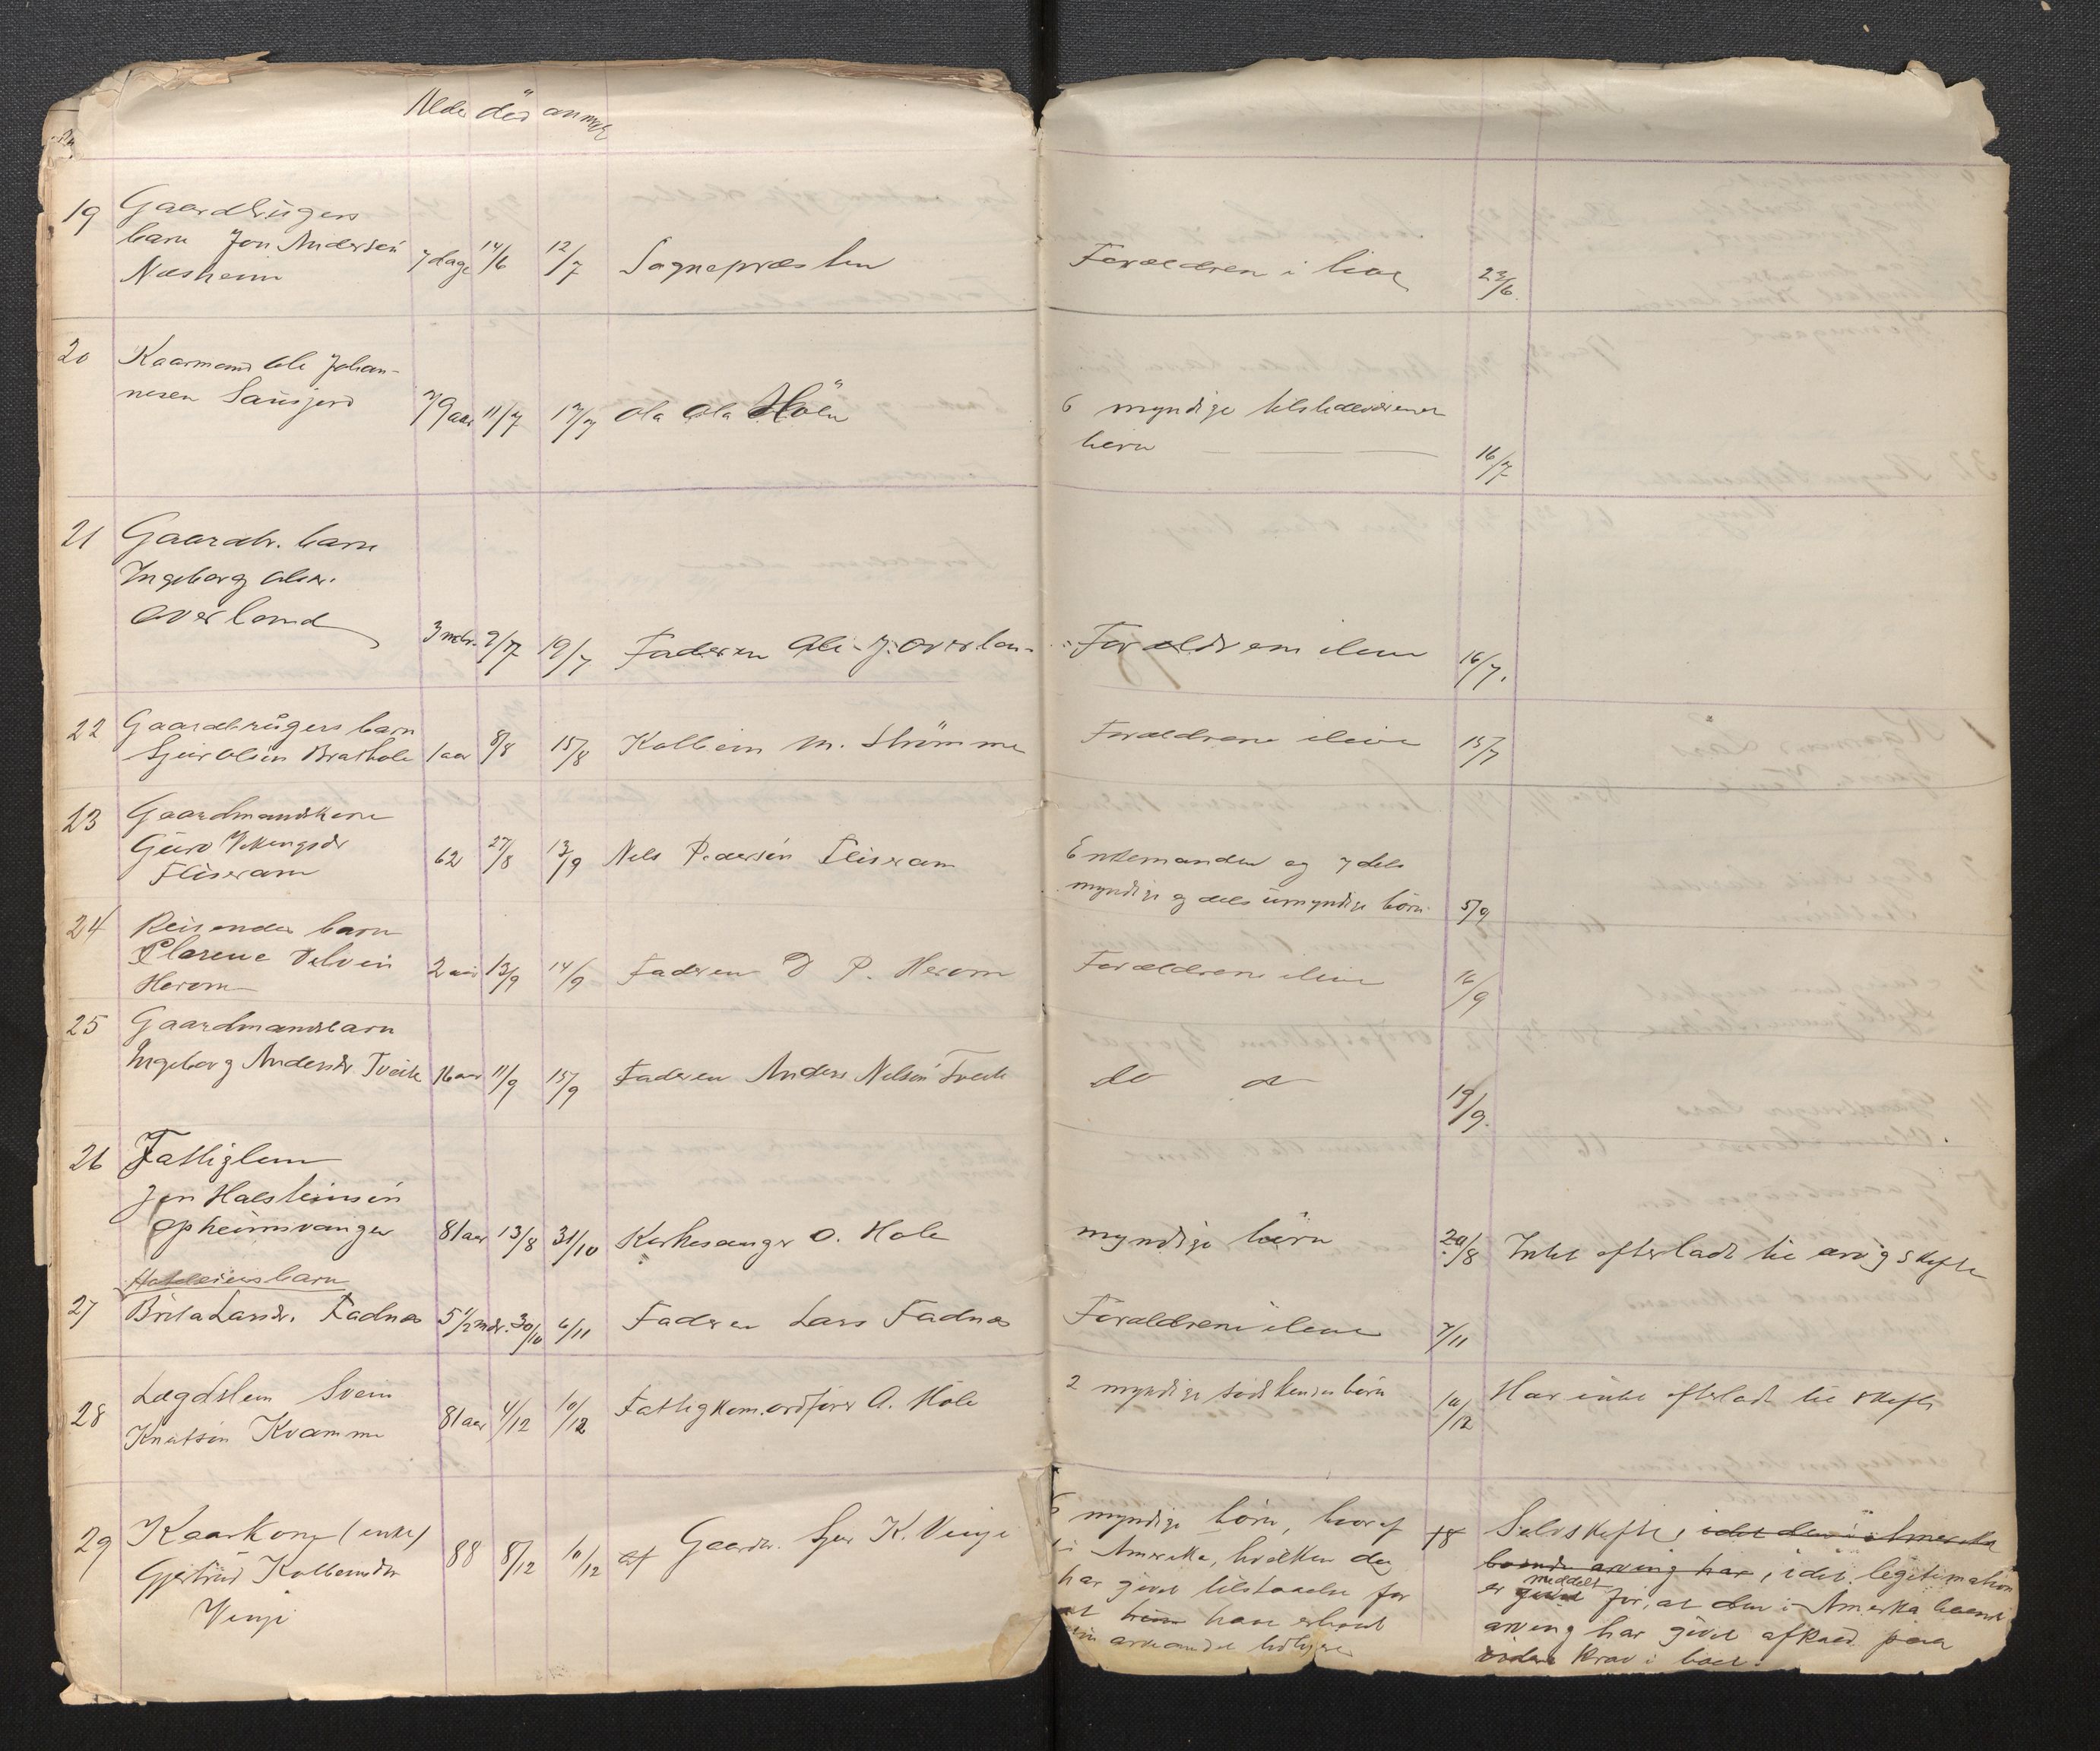 Alder död anm
19 Gaardbrugers
barn Jon Andersen
Næsheim 7 dage 14/6 12/7 Sognepræsten Forældren i live 23/6.
20 Kaarmand Ole Johan-
nesen Sausjord 79 aar 11/7 17/7 Ola Ola Höln 6 myndige tilstedeværende
börn 16/7
21 Gaardb. barn
Ingeborg Olsdr.
Overland 3 mdr. 9/7 19/7 Faderen Ole J. Overlan- Forældrene ilive 16/7.
22 Gaardbrugers barn
Sjur Olsen Brathole 1 aar 8/8 15/8 Kolbein M. Strömme Forældrene ilive 15/7
23 Gaardmandskone
Guro Vikingsdr
Fliseram 62 27/8 13/9 Nils Pedersen Fliseram Enkemanden og 7 dels
myndige og dels umyndige börn 5/9
24 Reisendes barn
Clarence Delvin
Herom 2 aar 13/9 14/9 Faderen D P. Herom Forældrene ilive 16/9
25 Gaardmandsbarn
Ingeborg Andersdr. Tveite 16 aar 11/9 15/9 Faderen Anders Nilsen Tveite do do 19/9.
26 Fattiglem
Jon Halsteinsen
Opheimsvangen 81 aar 13/8 31/10 Kirkesanger O. Hole myndige börn 20/8 Intet efterladt til arv og skifte
27 Brita Larsdr. Fadnes 5 1/2 mdr. 30/10 6/11 Faderen Lars Fadnes Forældrene ilive 7/11
28 Lægdslem Svein
Knutsen Kvamme 81 aar 4/12 10/12 Fattigkom. ordförer O. Hole 2 myndige södskendebörn 10/12 Har intet efterladt til skifte
29 Kaarkone (enke)
Gjertrud Kolbeinsdr
Vinje 88 8/12 10/12 af Gaardb. Sjur K. Vinje
6 myndige börn, hvoraf
1 i Amerika, hvilken dog
har givet tilstaaelse for
at have erholdt
sin arveandel tidligere
18 Selvskifte, idet den i Amerika
boende arving har, idet legitimation
er givet meddelt for, at den i Amerika boende
arving har givet afkald paa
videre krav i boet.